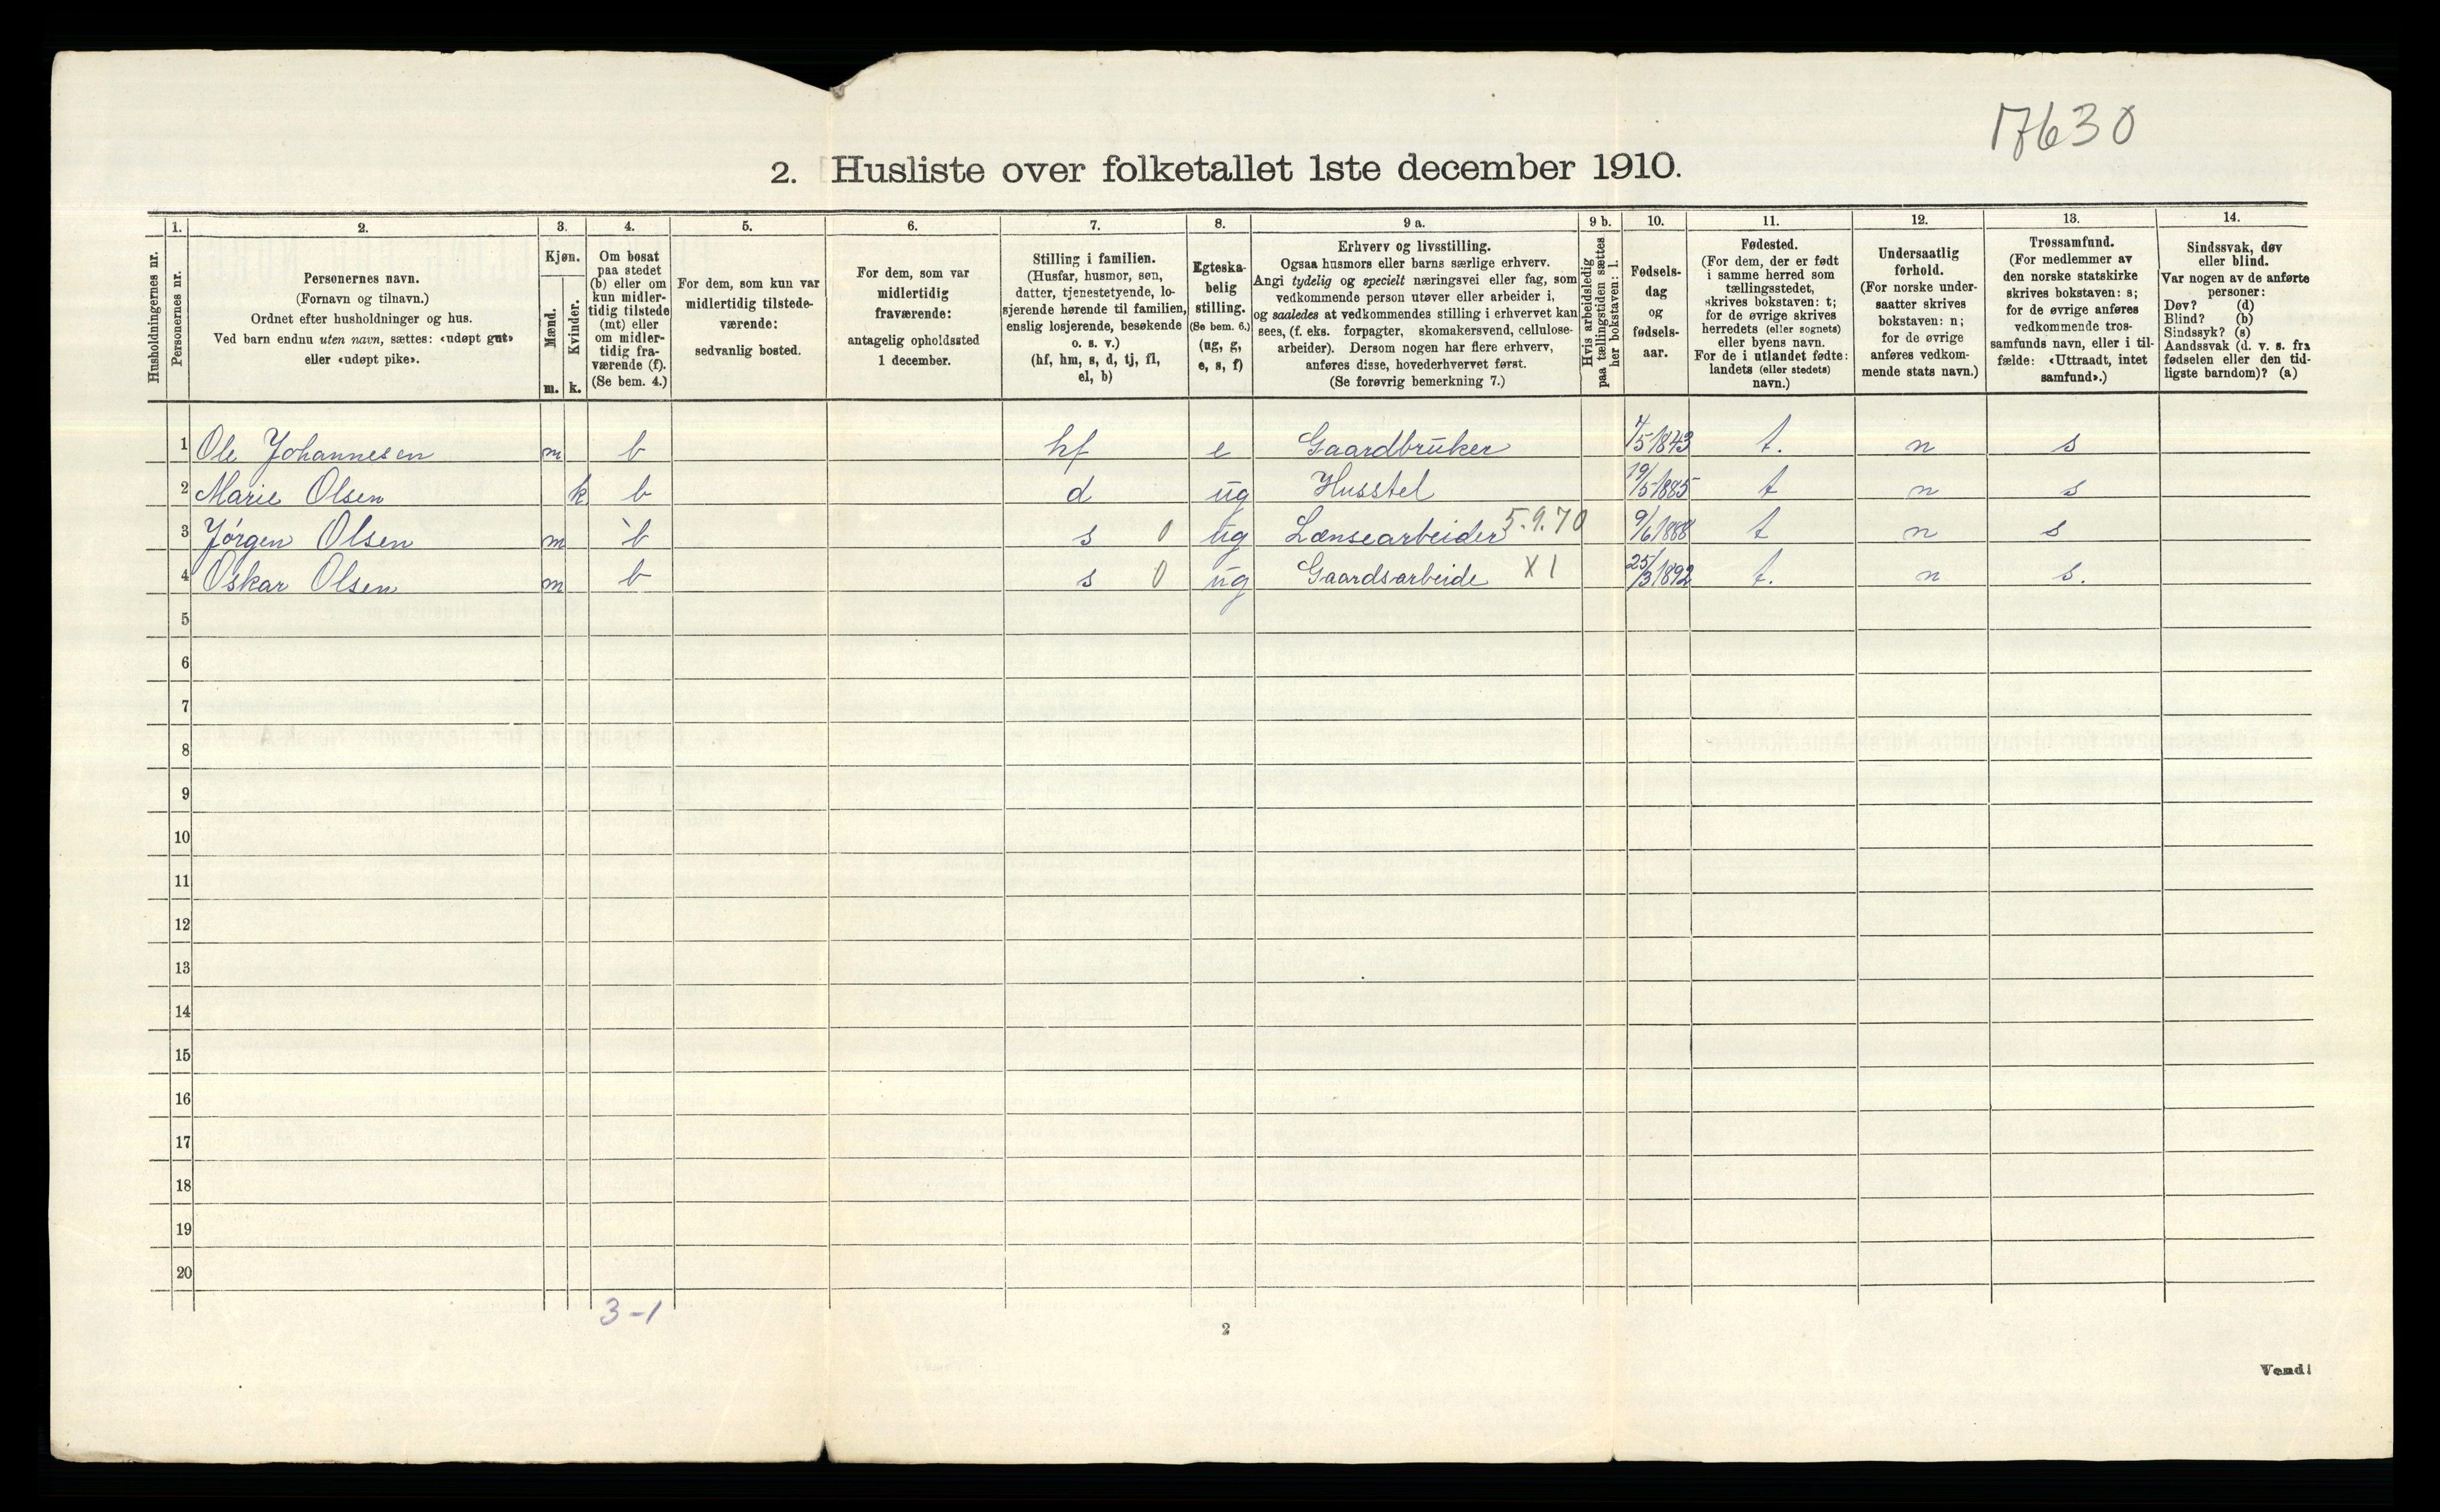 17630
2. Husliste over folketallet 1ste december 1910.
Husholdningernes nr.
1.
Personernes nr.
2.
Personernes navn.
(Fornavn og tilnavn.)
Ordnet efter husholdninger og hus.
Ved barn endnu uten navn, sættes: «udøpt gut»
eller «udøpt pike».
3.
Kjøn.
Mænd.
m.
Kvinder.
k.
4.
Om bosat
paa stedet
(b) eller om
kun midler-
tidig tilstede
(mt) eller
om midler-
tidig fra-
værende (f).
(Se bem. 4.)
5.
For dem, som kun var
midlertidig tilstede-
værende:
sedvanlig bosted.
6.
For dem, som var
midlertidig
fraværende:
antagelig opholdssted
1 december.
7.
Stilling i familien.
(Husfar, husmor, søn,
datter, tjenestetyende, lo-
sjerende hørende til familien,
enslig losjerende, besøkende
o. s. v.)
(hf, hm, s, d, tj, fl,
el, b)
8.
Egteska-
belig
stilling.
(Se bem. 6.)
(ug, g,
e, s, f)
9 a.
Erhverv og livsstilling.
Ogsaa husmors eller barns særlige erhverv.
Angi tydelig og specielt næringsvei eller fag, som
vedkommende person utøver eller arbeider i,
og saaledes at vedkommendes stilling i erhvervet kan
sees, (f. eks. forpagter, skomakersvend, cellulose-
arbeider). Dersom nogen har flere erhverv,
anføres disse, hovederhvervet først.
(Se forøvrig bemerkning 7.)
9 b.
Hvis arbeidsledig
paa tællingstiden sættes
her bokstaven: l.
10.
Fødsels-
dag
og
fødsels-
aar.
11.
Fødested.
(For dem, der er født
i samme herred som
tællingsstedet,
skrives bokstaven: t;
for de øvrige skrives
herredets (eller sognets)
eller byens navn.
For de i utlandet fødte:
landets (eller stedets)
navn.)
12.
Undersaatlig
forhold.
(For norske under-
saatter skrives
bokstaven: n;
for de øvrige
anføres vedkom-
mende stats navn.)
13.
Trossamfund.
(For medlemmer av
den norske statskirke
skrives bokstaven: s;
for de øvrige anføres
vedkommende tros-
samfunds navn, eller i til-
fælde: «Uttraadt, intet
samfund».)
14.
Sindssvak, døv
eller blind.
Var nogen av de anførte
personer:
Døv? (d)
Blind? (b)
Sindssyk? (s)
Aandssvak (d. v. s. fra
fødselen eller den tid-
ligste barndom)? (a)
1 Ole Johannesen m b hf e Gaardbruker 7/5 1843 t. n s
2 Marie Olsen k b d ug Husstel 19/5 1885 t n s
3 Jørgen Olsen m b s 0 ug Lænsearbeider 5.9.70 9/6 1888 t n s
4 Oskar Olsen m b s 0 ug Gaardsarbeide X 1 25/3 1892 t. n s.
5
6
7
8
9
10
11
12
13
14
15
16
17
18
19
20
3-1
2
Vend!